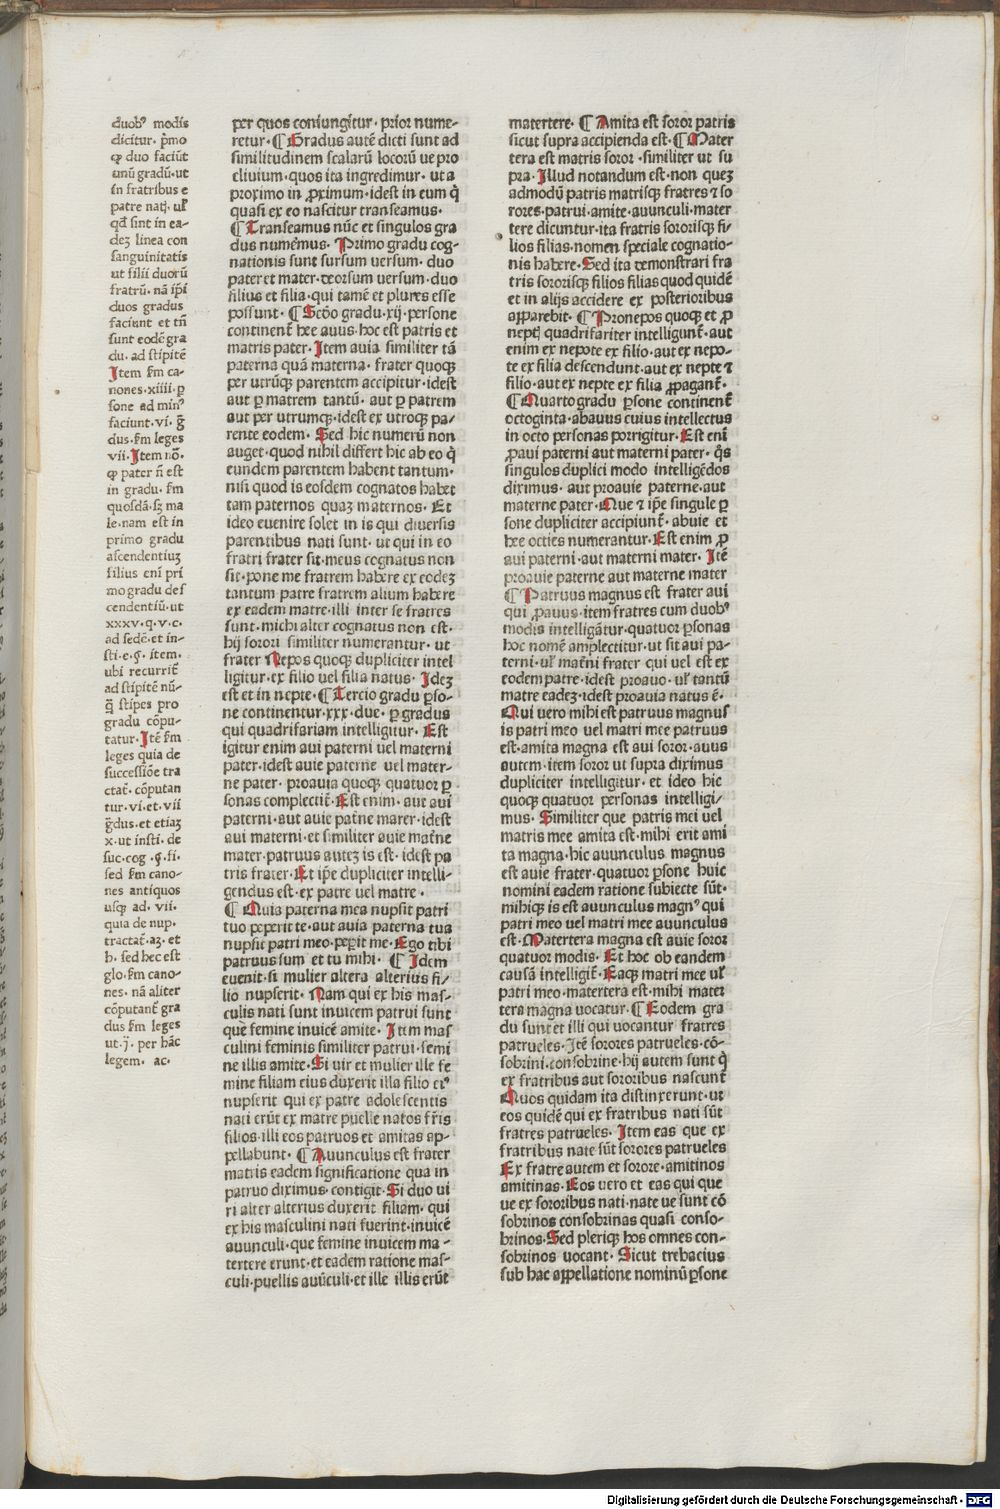 duobꝰ modis
dicitur. p̄mo
qꝫ duo faciūt
unū gradū. ut
in fratribus e
patre natꝭ. uł
qđ sint in ea-
deꝫ linea con
sanguinitatis
ut filii duorū
fratrū. nā ip̄i
duos gradus
faciunt et tn̄
sunt eodē gra
du. ad stipitē
Item fm ca-
nones. xiiii. ꝑ
sone ad minꝰ
faciunt. vi. g̃
dus. fm leges
vii. Item nō.
qꝫ pater n̄ est
in gradu. fm
quosdā. sꝫ ma
le. nam est in
primo gradu
ascendentiuꝫ
filius eni pri
mo gradu des
cendentiū. ut
xxxv. q. v. c.
ad sedē. et in-
sti. e. §. item.
ubi recurrit̄
ad stipitē nū-
q̄ stipes pro
gradu cōpu-
tatur. Itē fm
leges quia de
successiōe tra
ctat̄. cōputan
tur. vi. et. vii
g̃dus. et etiaꝫ
x. ut insti. de
suc. cog. §. fi.
sed fm cano-
nes antiquos
usqꝫ ad. vii.
quia de nup.
tractat̄. aꝫ. et
h. sed hec est
glo. fm cano-
nes. nā aliter
cōputant̄ gra
dus fm leges
ut. j̄. per hāc
legem. ac.
per quos coniungitur. prior nume-
retur. ¶ Gradus autē dicti sunt ad
similitudinem scalarū locorū ue pro
cliuium. quos ita ingredimur. ut a
proximo in ꝓximum. idest in eum q̄
quasi ex eo nascitur transeamus.
¶ Transeamus nūc et singulos gra
dus numēmus. Primo gradu cog-
nationis sunt sursum uersum. duo
pater et mater. deorsum uersum. duo
filius et filia. qui tamē et plures esse
possunt. ¶ Scōo gradu. xij. persone
continent̄ hee auus. hoc est patris et
matris pater. Item auia similiter tā
paterna quā materna. frater quoqꝫ
per utrūqꝫ parentem accipitur. idest
aut ꝑ matrem tantū. aut ꝑ patrem
aut per utrumqꝫ. idest ex utroqꝫ pa-
rente eodem. Sed hic numerū non
auget. quod nihil differt hic ab eo q̄
eundem parentem habent tantum.
nisi quod is eosdem cognatos habet
tam paternos quaꝫ maternos. Et
ideo euenire solet in is qui diuersis
parentibus nati sunt. ut qui in eo
fratri frater sit. meus cognatus non
sit. pone me fratrem habere ex eodeꝫ
tantum patre fratrem alium habere
ex eadem matre. illi inter se fratres
sunt. michi alter cognatus non est.
hij sorori similiter numerantur. ut
frater Nepos quoqꝫ dupliciter intel
ligitur. ex filio uel filia natus. Ideꝫ
est et in nepte. ¶ Tercio gradu ꝑso-
ne continentur. xxx. due. ꝑ gradus
qui quadrifariam intelligitur. Est
igitur enim aui paterni uel materni
pater. idest auie paterne uel mater-
ne pater. proauia quoqꝫ quatuor ꝑ
sonas complectit̄. Est enim. aut aui
paterni. aut auie pat̄ne marer. idest
aui materni. et similiter auie mat̄ne
mater. patruus auteꝫ is est. idest pa
tris frater. Et ip̄e dupliciter intelli-
gendus est. ex patre uel matre.
¶ Quia paterna mea nupsit patri
tuo peperit te. aut auia paterna tua
nupsit patri meo. peꝑit me. Ego tibi
patruus sum et tu mihi. ¶ Idem
euenit. si mulier altera alterius fi-
lio nupserit. Nam qui ex his mas-
culis nati sunt inuicem patrui sunt
que femine inuicē amite. Item mas
culini feminis similiter patrui. femi
ne illis amite. Si uir et mulier ille fe
mine filiam eius duxerit illa filio eiꝰ
nupserit qui ex patre adolescentis
nati erūt ex matre puelle natos fr̄is
filios. illi eos patruos et amitas ap-
pellabunt. ¶ Auunculus est frater
matris eadem significatione qua in
patruo diximus. contigit. Si duo ui
ri alter alterius duxerit filiam. qui
ex his masculini nati fuerint. inuicē
auunculi. que femine inuicem ma-
tertere erunt. et eadem ratione mas-
culi. puellis auūculi. et ille illis erūt
matertere. ¶ Amita est soror patris
sicut supra accipienda est. ¶ Mater
tera est matris soror. similiter ut su
pra. Illud notandum est. non queꝫ
admodū patris matrisqꝫ fratres ⁊ so
rores. patrui. amite. auunculi. mater
tere dicuntur. ita fratris sororisqꝫ fi-
lios filias. nomen speciale cognatio-
nis habere. Sed ita demonstrari fra
tris sororisqꝫ filios filias quod quidē
et in alijs accidere ex posterioribus
apparebit. ¶ Pronepos quoqꝫ et ꝓ
neptꝭ quadrifariter intelligunt̄. aut
enim ex nepote ex filio. aut ex nepo-
te ex filia descendunt. aut ex nepte ⁊
filio. aut ex nepte ex filia ꝓpagant̄.
¶ Quarto gradu ꝑsone continent̄
octoginta. abauus cuius intellectus
in octo personas porrigitur. Est eni
ꝓaui paterni aut materni pater. q̄s
singulos duplici modo intelligēdos
diximus. aut proauie paterne. aut
materne pater. Que ⁊ ip̄e singule ꝑ
sone dupliciter accipiunt̄. abuie et
hee octies numerantur. Est enim ꝓ
aui paterni. aut materni mater. Itē
proauie paterne aut materne mater
¶ Patruus magnus est frater aui
qui ꝓauus. item fratres cum duobꝰ
modis intelligātur. quatuor ꝑsonas
hoc nomē amplectitur. ut sit aui pa-
terni. uł mat̄ni frater qui uel est ex
eodem patre. idest proauo. uł tantū
matre eadeꝫ. idest proauia natus ē.
Qui uero mihi est patruus magnus
is patri meo uel matri mee patruus
est. amita magna est aui soror. auus
autem. item soror ut supra diximus
dupliciter intelligitur. et ideo hic
quoqꝫ quatuor personas intelligi-
mus. Similiter que patris mei uel
matris mee amita est. mihi erit ami
ta magna. hic auunculus magnus
est auie frater. quatuor ꝑsone huic
nomini eadem ratione subiecte sūt.
mihiqꝫ is est auunculus magnꝰ qui
patri meo uel matri mee auunculus
est. Matertera magna est auie soror
quatuor modis. Et hoc ob eandem
causā intelligit̄. Eaqꝫ matri mee uł
patri meo. matertera est. mihi mater
tera magna uocatur. ¶ Eodem gra
du sunt et illi qui uocantur fratres
patrueles. Itē sorores patrueles. cō-
sobrini. consobrine. hij autem sunt q̄
ex fratribus aut sororibus nascunt̄
Quos quidam ita distinxerunt. ut
eos quidē qui ex fratribus nati sūt
fratres patrueles. Item eas que ex
fratribus nate sūt sorores patrueles
Ex fratre autem et sorore. amitinos
amitinas. Eos uero et eas qui que
ue ex sororibus nati. nate ue sunt cō
sobrinos consobrinas quasi conso-
brinos. Sed pleriqꝫ hos omnes con-
sobrinos uocant. Sicut trebacius
sub hac appellatione nominū ꝑsone
Digitalisierung gefördert durch die Deutsche Forschungsgemeinschaft - DFG